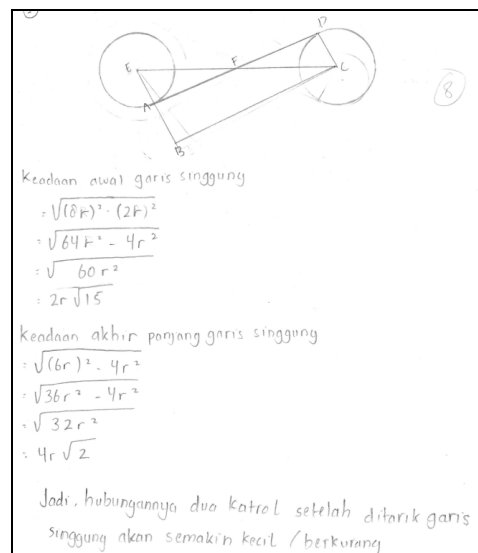 D
E
F
C
A
B
8
Keadaan awal garis singgung
= √(8r)² - (2r)²
= √64r² - 4r²
= √60r²
= 2r√15
Keadaan akhir panjang garis singgung
= √(6r)² - 4r²
= √36r² - 4r²
= √32r²
= 4r√2
Jadi, hubungannya dua katrol setelah ditarik garis
singgung akan semakin kecil / berkurang